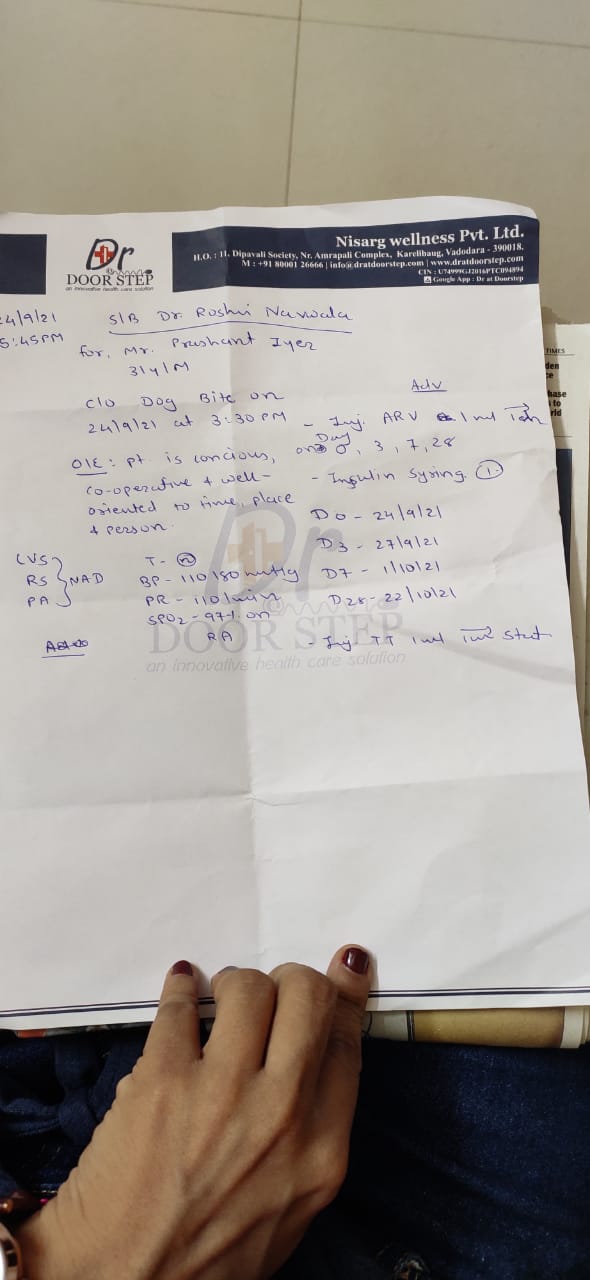 Dr
DOOR STEP
an innovative health care solution
Nisarg wellness Pvt. Ltd.
H.O. : 11, Dipavali Society, Nr. Amrapali Complex, Karelibaug, Vadodara - 390018.
M : +91 80001 26666 | info@dratdoorstep.com | www.dratdoorstep.com
CIN : U74999GJ2016PTC094894
Google App : Dr at Doorstep
24/9/21
5:45PM
S/B Dr Roshni Narwala
for, Mr. Prashant Iyer
31y/M
C/o Dog Bite on
24/9/21 at 3:30 PM
O/E : pt. is concious,
co-operative & well-
oriented to time, place
& person.
CVS
RS NAD
PA
T- n
BP - 110/80 mmHg
PR - 110/min
SPO2 - 97% on
RA
Adv
- Inj. ARV 1 ml
on Day 0, 3, 7, 28
- Insulin Syring. 1
D0 - 24/9/21
D3 - 27/9/21
D7 - 1/10/21
D28 - 22/10/21
- Inj. TT 1 ml stat
Dr
DOOR STEP
an innovative health care solution
TIMES